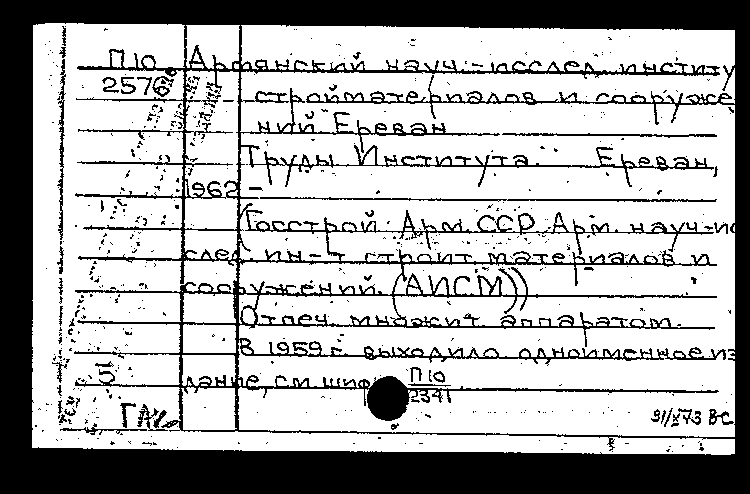 П10 Армянский науч.-исслед. институ
2576 стройматериалов и сооруже
ний Ереван
Труды Института. Ереван,
1962 –
(Госстрой Арм. ССР Арм. науч-ис
след. ин-т строит. материалов и
сооружений. (АИСМ))
Отпеч. множит. аппаратом.
В 1959 г. выходило одноименное из
дание, см. шиф П10
2341